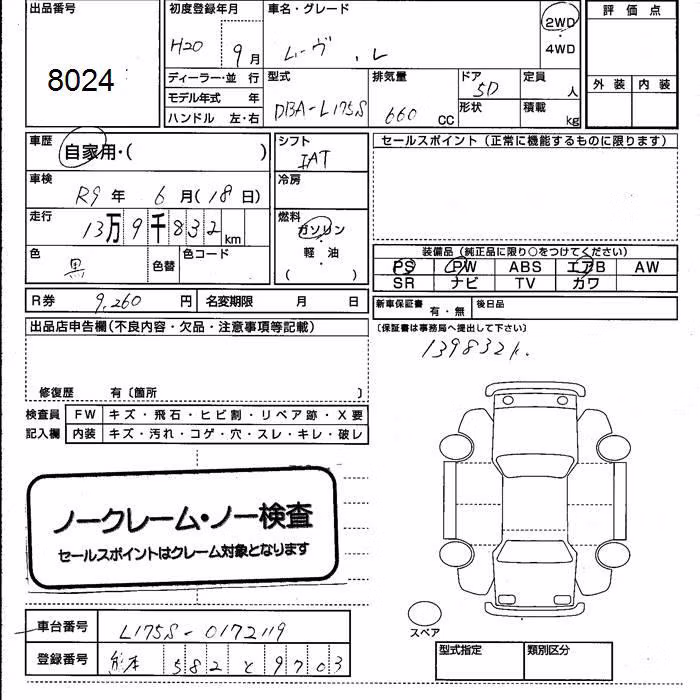 出品番号
8024
初度登録年月
H20 9月
車名・グレード
ムーヴ . L
2WD
・
4WD
評価点
外装 内装
ディーラー・並 行
モデル年式 年
ハンドル 左・右
型式
DBA-L175S
排気量
660 CC
ドア
5D
形状
定員
人
積載
kg
車歴
自家用・( )
車検
R9年 6月(18日)
走行
13万9千832km
色
黒
色替
色コード
シフト
IAT
冷房
燃料
ガソリン
・
軽・油
( )
セールスポイント(正常に機能するものに限ります)
装備品(純正品に限り○をつけてください)
PS PW ABS エアB AW
SR ナビ TV カワ
R券 9,260 円 名変期限 月 日
新車保証書 有・無 後日品
(保証書は事務局へ提出して下さい)
139832k.
出品店申告欄(不良内容・欠品・注意事項等記載)
修復歴 有〔箇所 〕
検査員 FW キズ・飛石・ヒビ割・リペア跡・X要
記入欄 内装 キズ・汚れ・コゲ・穴・スレ・キレ・破レ
ノークレーム・ノー検査
セールスポイントはクレーム対象となります
車台番号 L175S-0172119
登録番号 熊本 582 と 9703
スペア
型式指定 類別区分